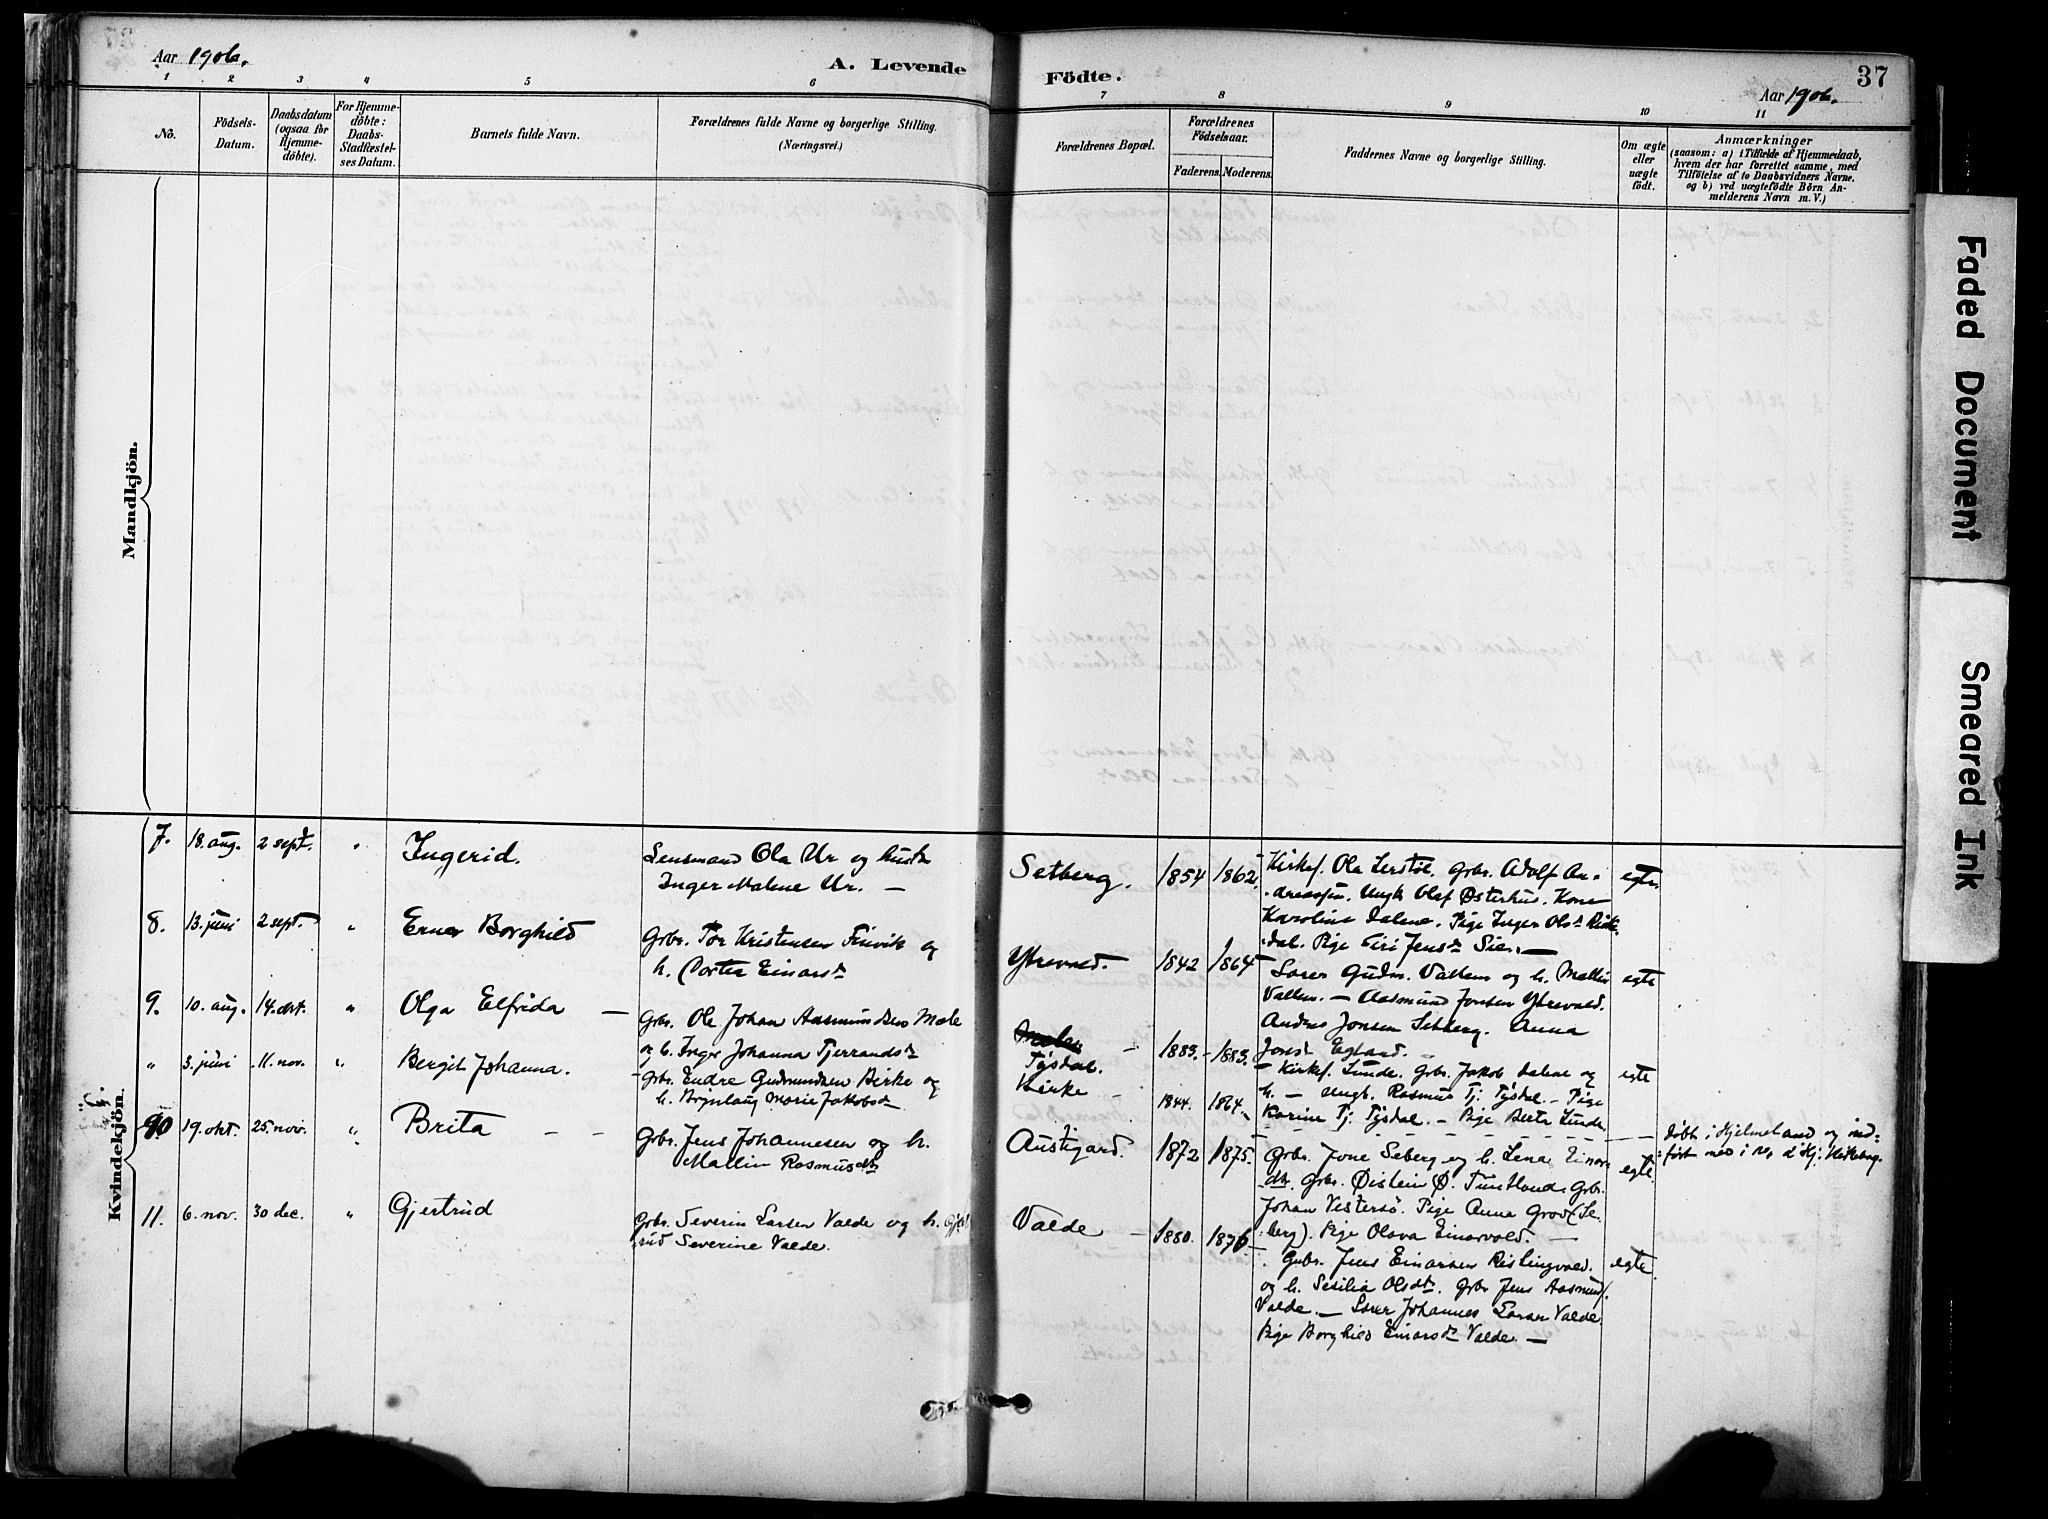 Aar 1906.
A. Levende
Födte.
37
Aar 1906.
1 2 3 4 5 6 7 8 9 10 11
No.
Födsels-
Datum.
Daabsdatum
(ogsaa for
Hjemme-
döbte).
For Hjemme-
döbte:
Daabs-
Stadfæstel-
ses Datum.
Barnets fulde Navn.
Forældrenes fulde Navne og borgerlige Stilling.
(Næringsvei.)
Forældrenes Bopæl.
Forældrenes
Födselsaar.
Faderens. Moderens.
Faddernes Navne og borgerlige Stilling.
Om ægte
eller
uægte
födt.
Anmærkninger
(saasom: a) i Tilfælde af Hjemmedaab,
hvem der har forrettet samme, med
Tilföielse af to Daabsvidners Navne,
og b) ved uægtefödte Börn An-
melderens Navn m. V.)
Mandkjön.
Kvindekjön.
7. 18. aug. 2 sept. " Ingerid.
Lensmand Ola Ur og hustr
Inger Malene Ur. —
Setberg. 1854 1862.
Kirkes. Ola Lerstöl. Gbr. Adolf An-
dreassen. Ungk Olaf Østerhus. Kone
Karoline Dalene. Pige Inger Olsdt
dal. Pige Siri Jensdt
egte.
8. 13. juni 2 sept. " Erna Borghild
Gbr. Tor Kristensen og
h. Einarsdt
Ytrevold. 1842 1864
Gudm. Vallem og h. Mallin
Vallem. — Aasmund Jonsen Ytrevold.
Andres Jonsen Setberg. Anna
Jonsdt Egland.
egte
9. 10. aug. 14. okt. " Olga Elfrida —
Gbr. Ole Johan Aasmundsen Mæle
og h. Inger Johanna Tjerrandsdt
Tysdal. 1883. 1883.
— Kirkes. Lunde. Gbr. Jakob Dalene og
h. — Ungk. Rasmus Tj. Tysdal. — Pige
Karine Tj. Tysdal. — Pige Berta Lunde
egte
" 3. juni 11. nov. " Bergit Johanna.
Gbr. Endre Gudmundsen Birke og
h. Brynlaug Marie Jakobsdt
Birke 1844. 1864.
döbt i Hjelmeland og ind-
fört
10 19. okt. 25. nov. " Brita — —
Gbr. Jens Johannesen og h.
Mallin Rasmusdt
Austigard. 1872 1875.
Gbr. Jone Seberg og h. Lena Einars
dt. Gbr. Øistein Ø. Tuntland. Gbr.
Johan Vestersö. Pige Anna Grov (Se-
berg). Pige Olava Einarvold. —
egte.
11. 6. nov. 30 dec. " Gjertrud
Gbr. Severin Larsen Valde og h. Gjert
rud Severine Valde.
Valde — 1880. 1876.
Gbr. Jens Einarsen
og h. Sesilia Olsdt. Gbr Jens Aasmunds.
Valde. — Johannes Larsen Valde
Pige Borghild Einarsdt Valde. —
egte.
Faded Document
Smeared Ink